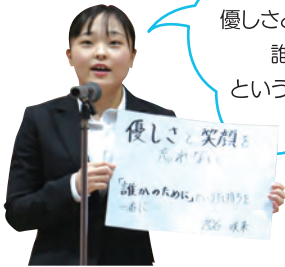 優しさと
誰
という
優しさと笑顔を
忘れない
「誰かのために」という気持ちを
一番に